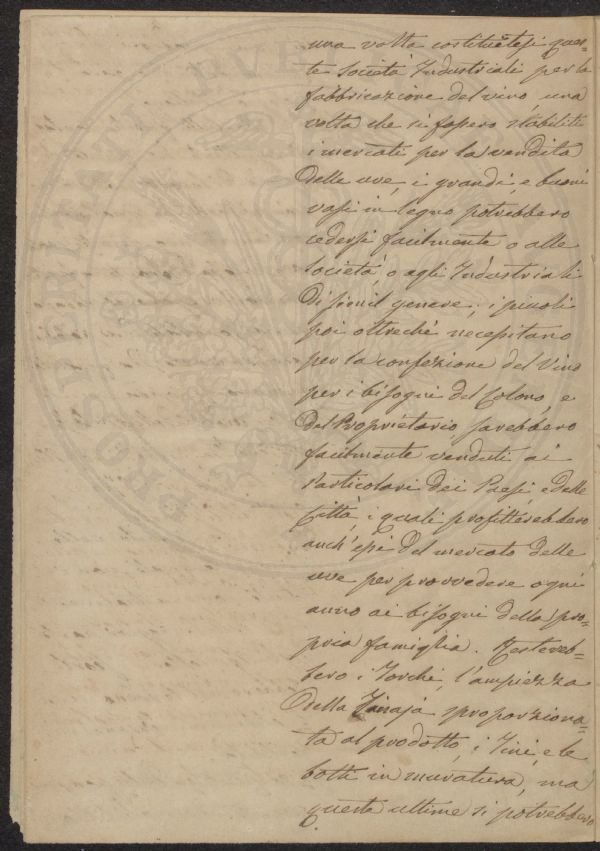 una volta costituitesi ques=
te Società Industriali per la
fabbricazione del vino, una
volta che si fossero stabiliti
i mercati per la vendita
delle uve, i grandi, e buoni
vasi in legno potrebbero
cedersi facilmente o alle
Società, o agli Industriali
di simil genere; i piccoli
poi oltrechè necessitano
per la confezione del Vino
per i bisogni del Colono, e
del Proprietario sarebbero
facilmente venduti ai
Particolari dei Paesi e delle
Città, i quali profitterebbero
anch'essi del mercato delle
uve per provvedere ogni
anno ai bisogni della pro=
pria famiglia. Restereb=
bero i Torchi, l'ampiezza
della Tinaja sproporziona=
ta al prodotto, i Tini, e le
botti in muratura, ma
queste ultime si potrebbero
PROSPERITATI PVB